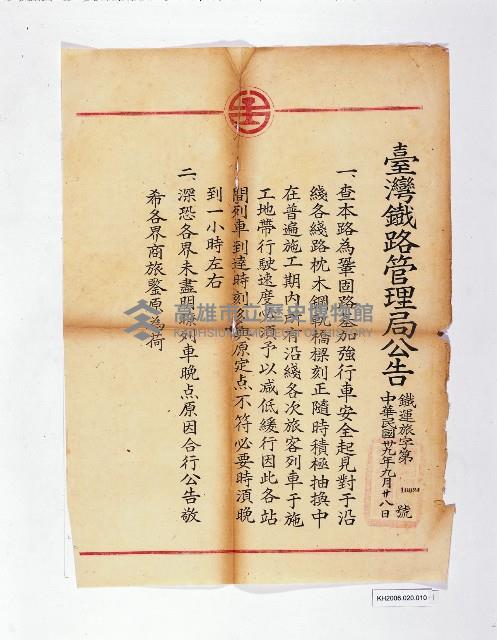 臺灣鐵路管理局公告
鐵運旅字第 10824 號
中華民國卅九年九月廿八日
一、查本路為鞏固路基加強行車安全起見對于沿
綫各綫路枕木鋼軌橋樑刻正隨時積極抽換中
在普遍施工期內所有沿綫各次旅客列車于施
工地帶行駛速度必須予以减低緩行因此各站
間列車到達時刻 與原定点不符必要時須晚
到一小時左右
二、深恐各界未盡明瞭列車晚点原因合行公告敬
希各界商旅鑒原為荷
高雄市立歷史博物館
KAOHSIUNG MUSEUM OF HISTORY
KH2006.020.010